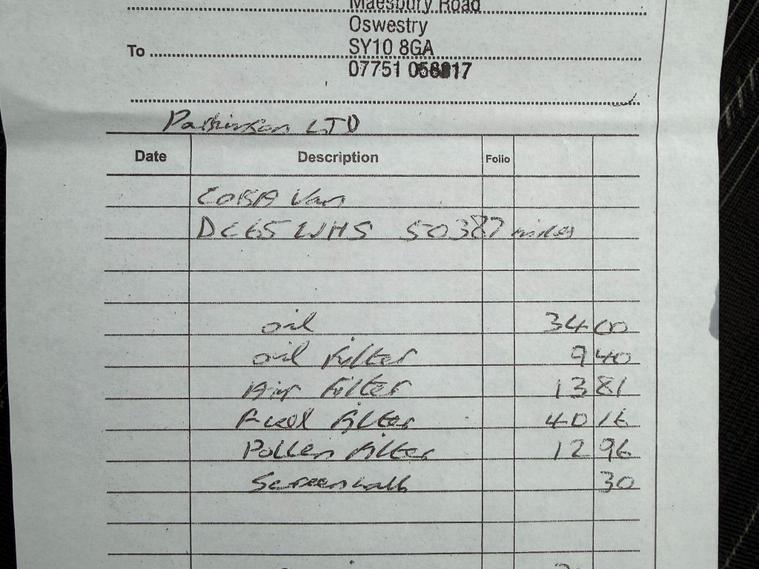 Maesbury Road
Oswestry
To SY10 8GA
07751
LTD
Date Description Folio
Van
50387 miles
oil 34 00
oil Filter 9 40
Air Filter 13 81
Fuel Filter 40 16
Pollen Filter 12 96
Screenwash 30